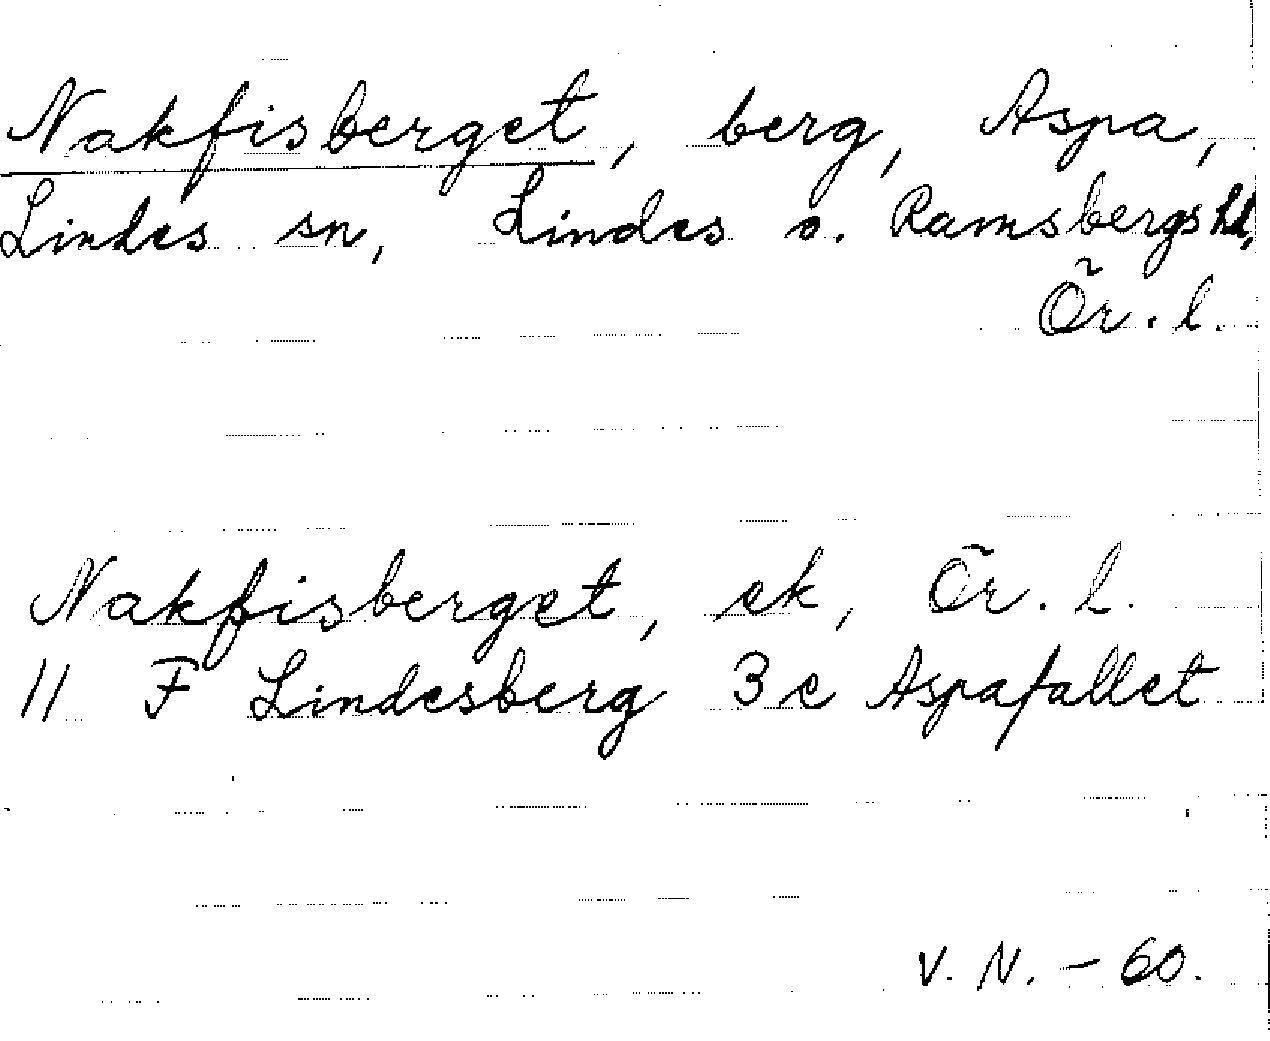 Nakfisberget, berg, Aspa,
Lindes sn, Lindes o. Ramsbergs hd,
Ör. l.
Nakfisberget, ek, Ör. l.
11 F Lindesberg 3 e Aspafallet
V. N. - 60.